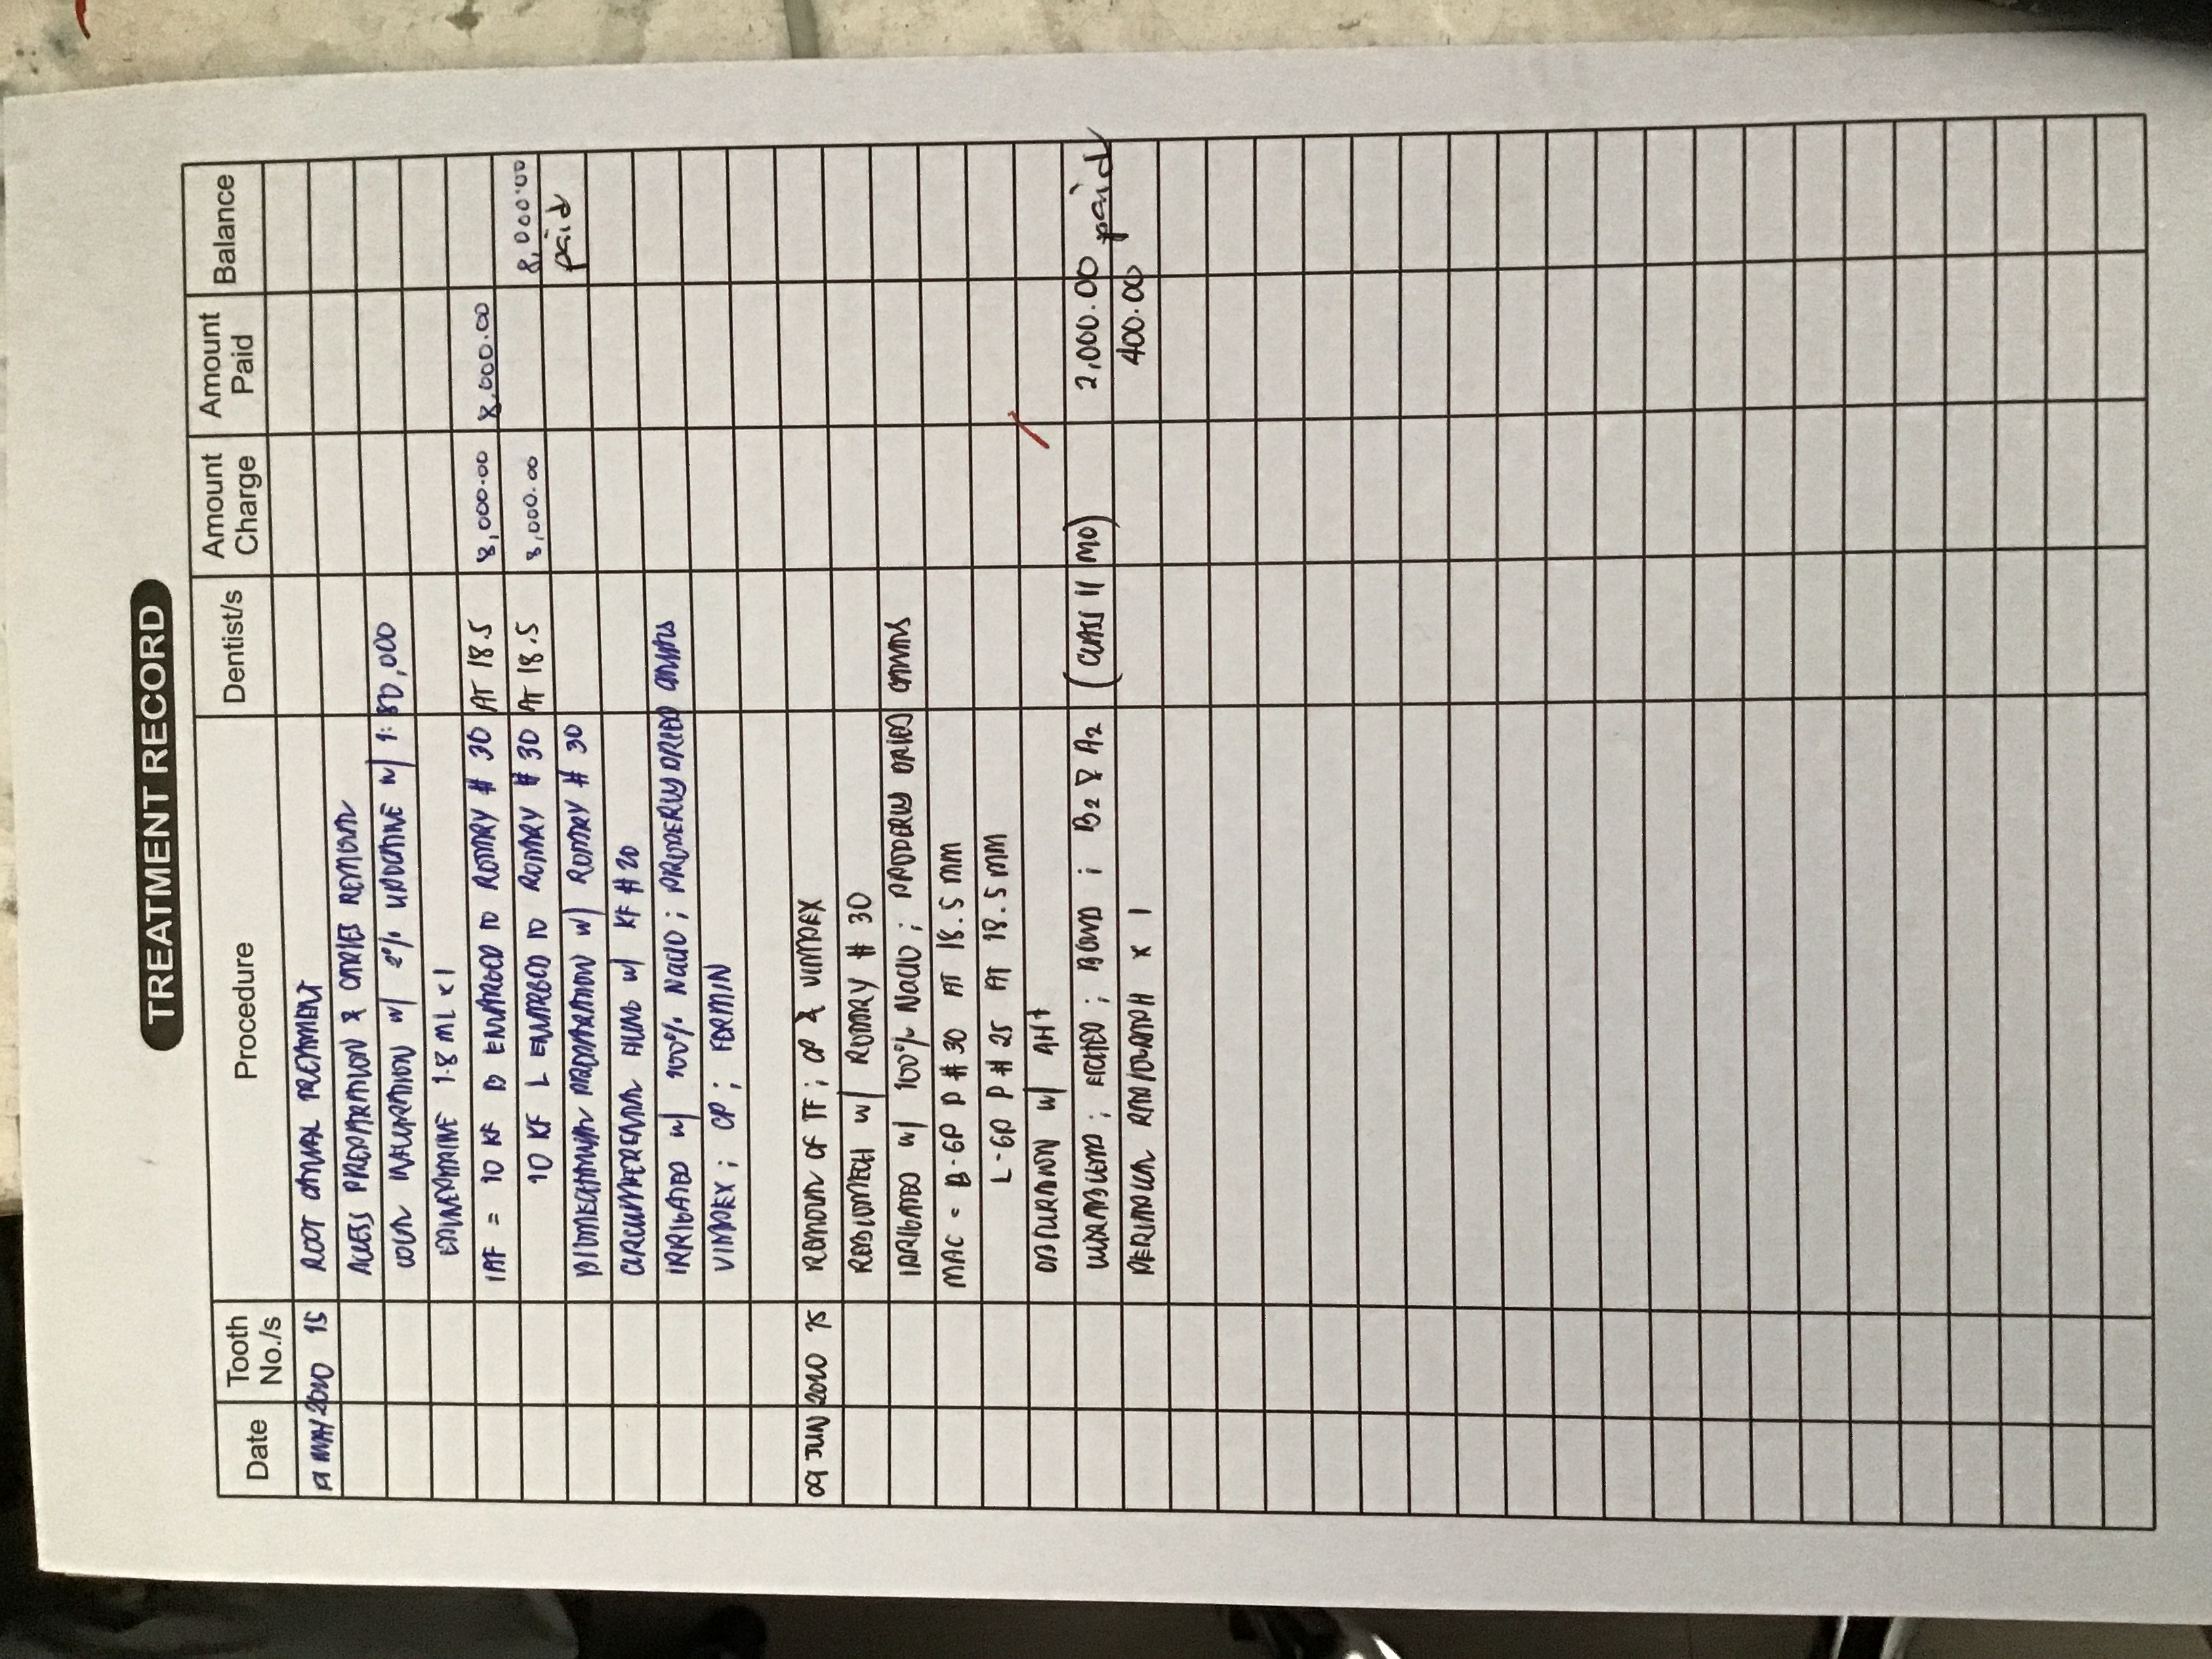 TREATMENT RECORD
Date Tooth No./s Procedure Dentist/s Amount Charge Amount Paid Balance
MAY 2020 15 ROOT CANAL TREATMENT
ACCESS PREPARATION & CARIES REMOVAL
LOCAL INFILTRATION w/ 2% LIDOCAINE w/ 1:80,000
EPINEPHRINE 1.8 ML x 1
IAF = 10 KF B ENLARGED TO ROTARY # 30 AT 18.5 8,000.00 8,000.00
10 KF L ENLARGED TO ROTARY # 30 AT 18.5 8,000.00 8,000.00
BIOMECHANICAL PREPARATION w/ ROTARY # 30 paid
CIRCUMFERENTIAL FILING w/ KF # 20
IRRIGATED w/ 100% NaClO ; PROPERLY DRIED CANALS
VITAPEX ; CP ; FERMIN
09 JUN 2020 15 REMOVAL OF TF ; CP & VITAPEX
w/ ROTARY # 30
IRRIGATED w/ 100% NaClO ; PROPERLY DRIED CANALS
MAC = B-GP P # 30 AT 18.5 MM
L-GP P # 25 AT 18.5 MM
OBTURATION w/ AH+
; ETCHED ; BOND ; B2 & A2 (CLASS II MO) 2,000.00 paid
PERIAPICAL RADIOGRAPH x 1 400.00